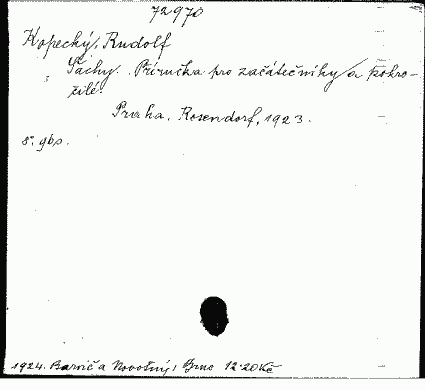 72970
Kopecký, Rudolf
Šachy. Příručka pro začátečníky a pokro-
žilé.
Praha, Rosendorf, 1923.
8°. gbs.
1924. Barvič a Novotný, Brno 12·20 Kč